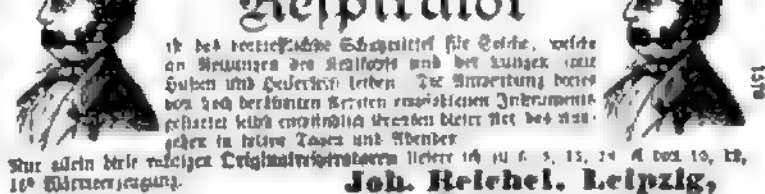 Respirator
ist das vortrefflichste Schutzmittel für Solche, welche
an Reizungen des Kehlkopfs und der Lungen, wie
Husten und Heiserkeit leiden. Die Anwendung dieses
von hoch berühmten Aerzten empfohlenen Instruments
gestattet selbst empfindlich Kranken dieser Art das
gehen in kalten Tagen und Abenden
Nur allein diese Originalrespiratoren liefere ich zu
16° Wärmeerzeugung.
Joh. Reichel. Leipzig.